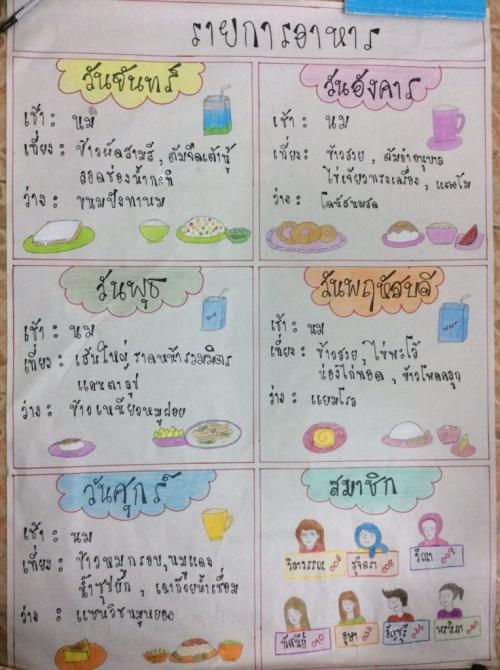 รายการอาหาร
วันจันทร์
เช้า : นม
เที่ยง : ข้าวผัดสามสี , ต้มจืดเต้าหู้
ลอดช่องน้ำกะทิ
ว่าง : ขนมปังทานม
วันอังคาร
เช้า : นม
เที่ยง : ข้าวสวย , ส้มตำอนุบาล
ไข่เจียวทรงเครื่อง , แตงโม
ว่าง : โดนัทนมสด
วันพุธ
เช้า : นม
เที่ยง : เส้นใหญ่ราดหน้ารวมมิตร
แคนตาลูป
ว่าง : ข้าวเหนียวหมูฝอย
วันพฤหัสบดี
เช้า : นม
เที่ยง : ข้าวสวย , ไข่พะโล้
น่องไก่ทอด , ข้าวโพดคลุก
ว่าง : แยมโรล
วันศุกร์
เช้า : นม
เที่ยง : ข้าวหมูกรอบ,หมูแดง
น้ำซุปฟัก , เฉาก๊วยน้ำเชื่อม
ว่าง : แซนวิชหมูหยอง
สมาชิก
วิลาวรรณ
สุจิตรา
วีณา
ทัศนีย์
อุษา
ธัญชุรี